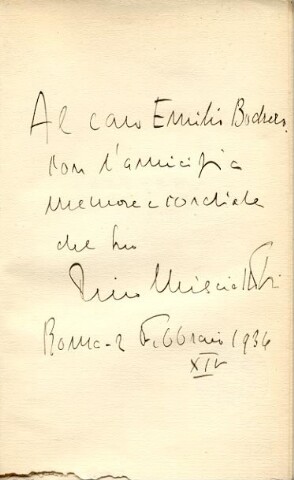 Al caro Emilio Bodrero,
con l'amicizia
memore e cordiale
del suo
Piero Misciattelli
Roma - 2 Febbraio 1936
XIV